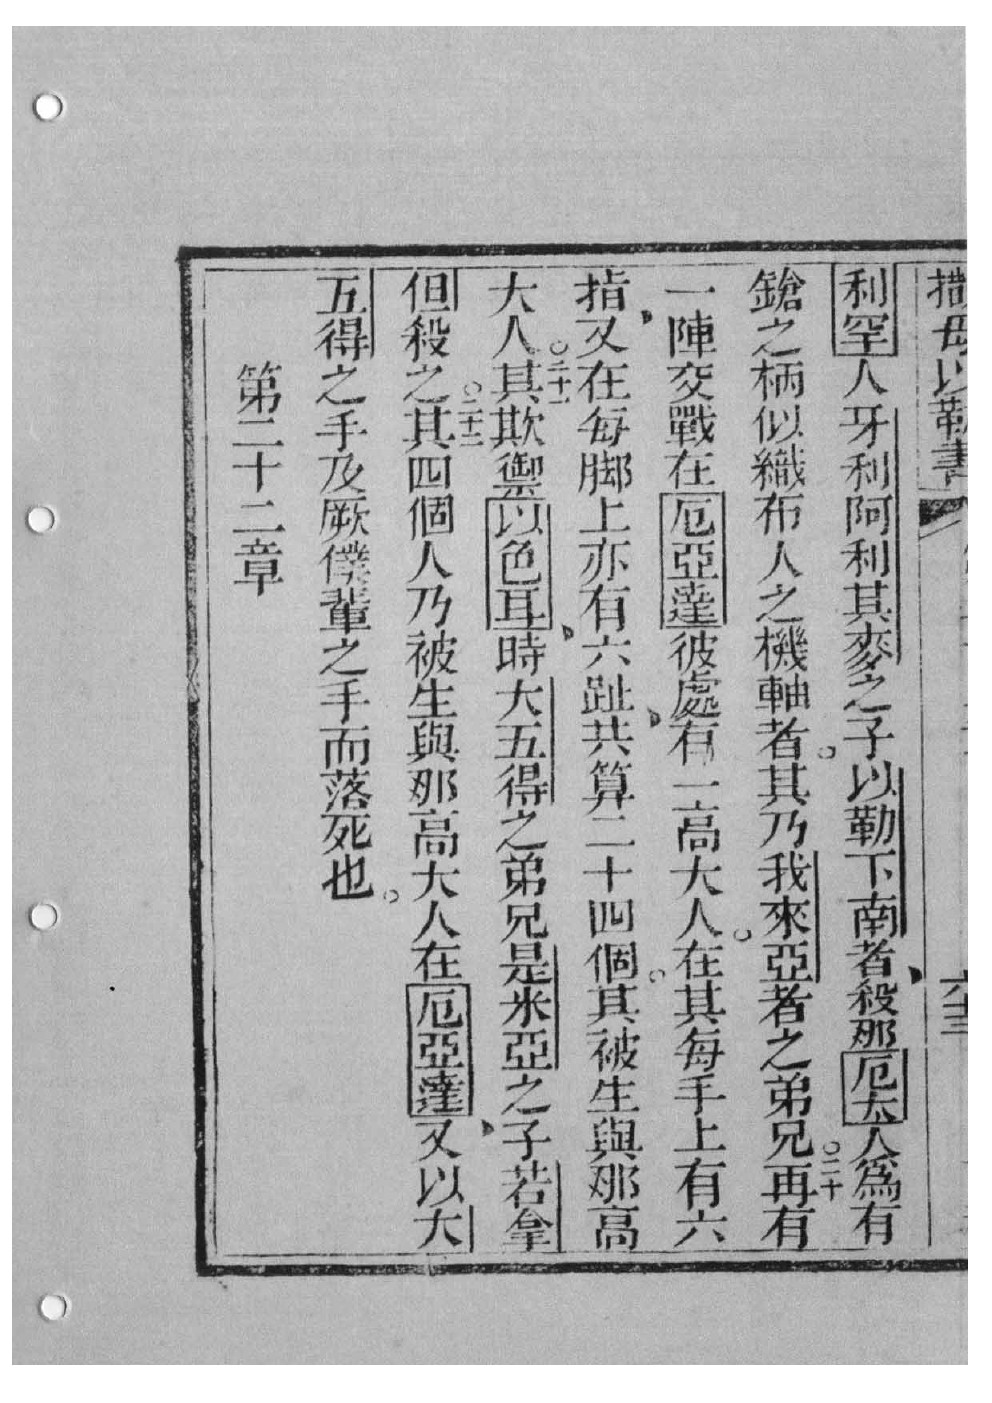 撒母以勒書
六十三
利罕人牙利阿利其麥之子以勒下南者殺那厄大人為有
鎗之柄似織布人之機軸者其乃我來亞者之弟兄〇二十再有
一陣交戰在厄亞達彼處有一高大人在其每手上有六
指又在每脚上亦有六趾共算二十四個其被生與那高
大人〇二十一其欺禦以色耳時大五得之弟兄是米亞之子若拿
但殺之〇二十二其四個人乃被生與那高大人在厄亞達又以大
五得之手及厥僕輩之手而落死也
第二十二章